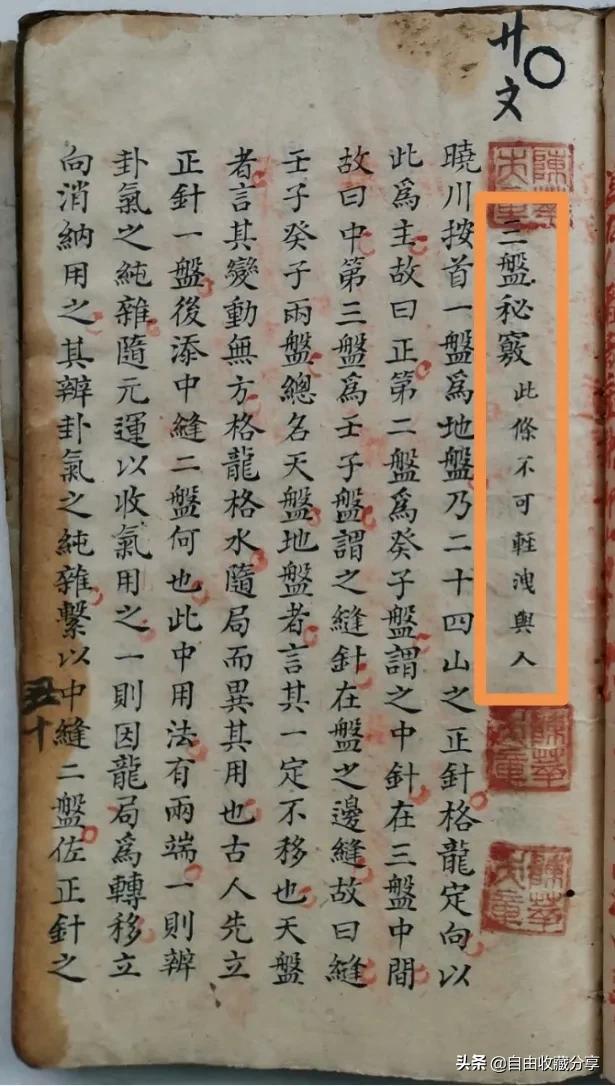 文
三盤秘竅此條不可輕洩與人
曉川按首一盤爲地盤乃二十四山之正針格龍定向以
此爲主故曰正第二盤爲癸子盤謂之中針在三盤中間
故曰中第三盤爲壬子盤謂之縫針在盤之邊縫故曰縫
壬子癸子兩盤總名天盤地盤者言其一定不移也天盤
者言其變動無方格龍格水隨局而異其用也古人先立
正針一盤後添中縫二盤何也此中用法有兩端一則辨
卦氣之純雜隨元運以收氣用之一則因龍局爲轉移立
向消納用之其辨卦氣之純雜繫以中縫二盤佐正針之
头条 @自由收藏分享